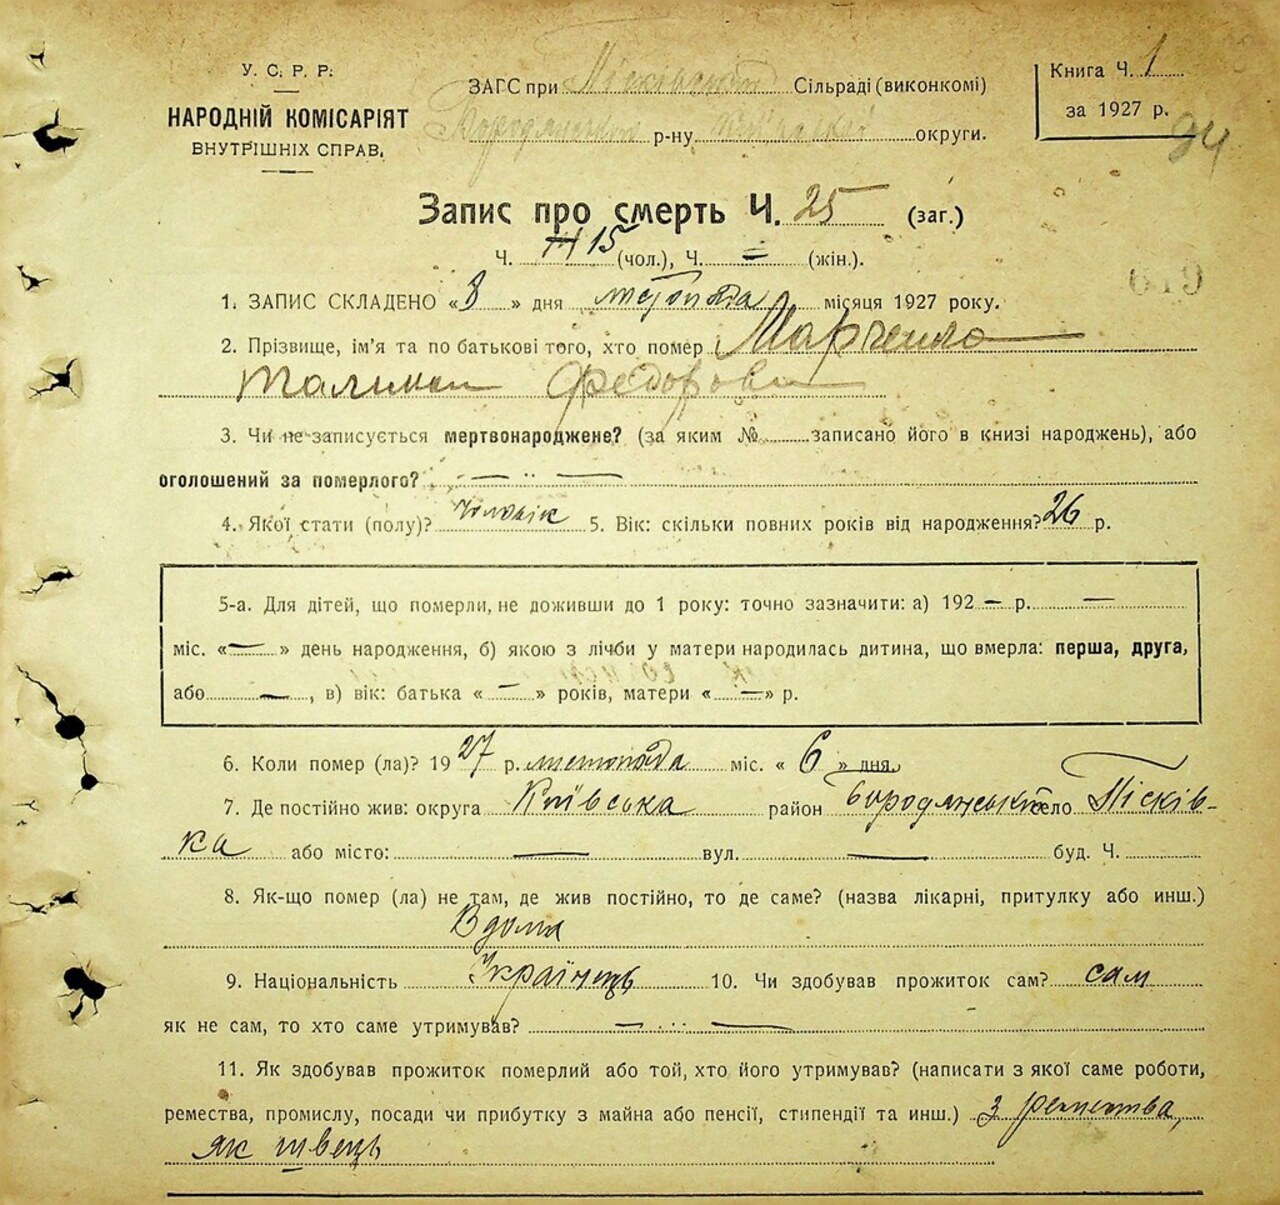 У. С. Р. Р.
НАРОДНІЙ КОМІСАРІЯТ
ВНУТРІШНІХ СПРАВ.
ЗАГС при Пісківській Сільраді (виконкомі)
Бородянського р-ну Київської округи.
Книга Ч. 1
за 1927 р.
94
Запис про смерть Ч. 25 (заг.)
Ч. 15 (чол.), Ч. = (жін.).
1. ЗАПИС СКЛАДЕНО «8» дня листопада місяця 1927 року.
2. Прізвище, ім'я та по батькові того, хто помер Марченко
Федорович
3. Чи не записується мертвонароджене? (за яким №......записано його в книзі народжень), або
оголошений за померлого? — .. —
4. Якої стати (полу)? Чоловік 5. Вік: скільки повних років від народження? 26 р.
5-а. Для дітей, що померли, не доживши до 1 року: точно зазначити: а) 192 — р. —
міс. «—» день народження, б) якою з лічби у матери народилась дитина, що вмерла: перша, друга,
або — , в) вік: батька «—» років, матери «—» р.
6. Коли помер (ла)? 1927 р. листопада міс. «6» дня.
7. Де постійно жив: округа Київська район Бородянський село Пісків-
ка або місто: — вул. — буд. Ч.
8. Як-що помер (ла) не там, де жив постійно, то де саме? (назва лікарні, притулку або инш.)
Вдома
9. Національність Українець 10. Чи здобував прожиток сам? сам
як не сам, то хто саме утримував? — .. —
11. Як здобував прожиток померлий або той, хто його утримував? (написати з якої саме роботи,
ремества, промислу, посади чи прибутку з майна або пенсії, стипендії та инш.) З ремества,
як швець